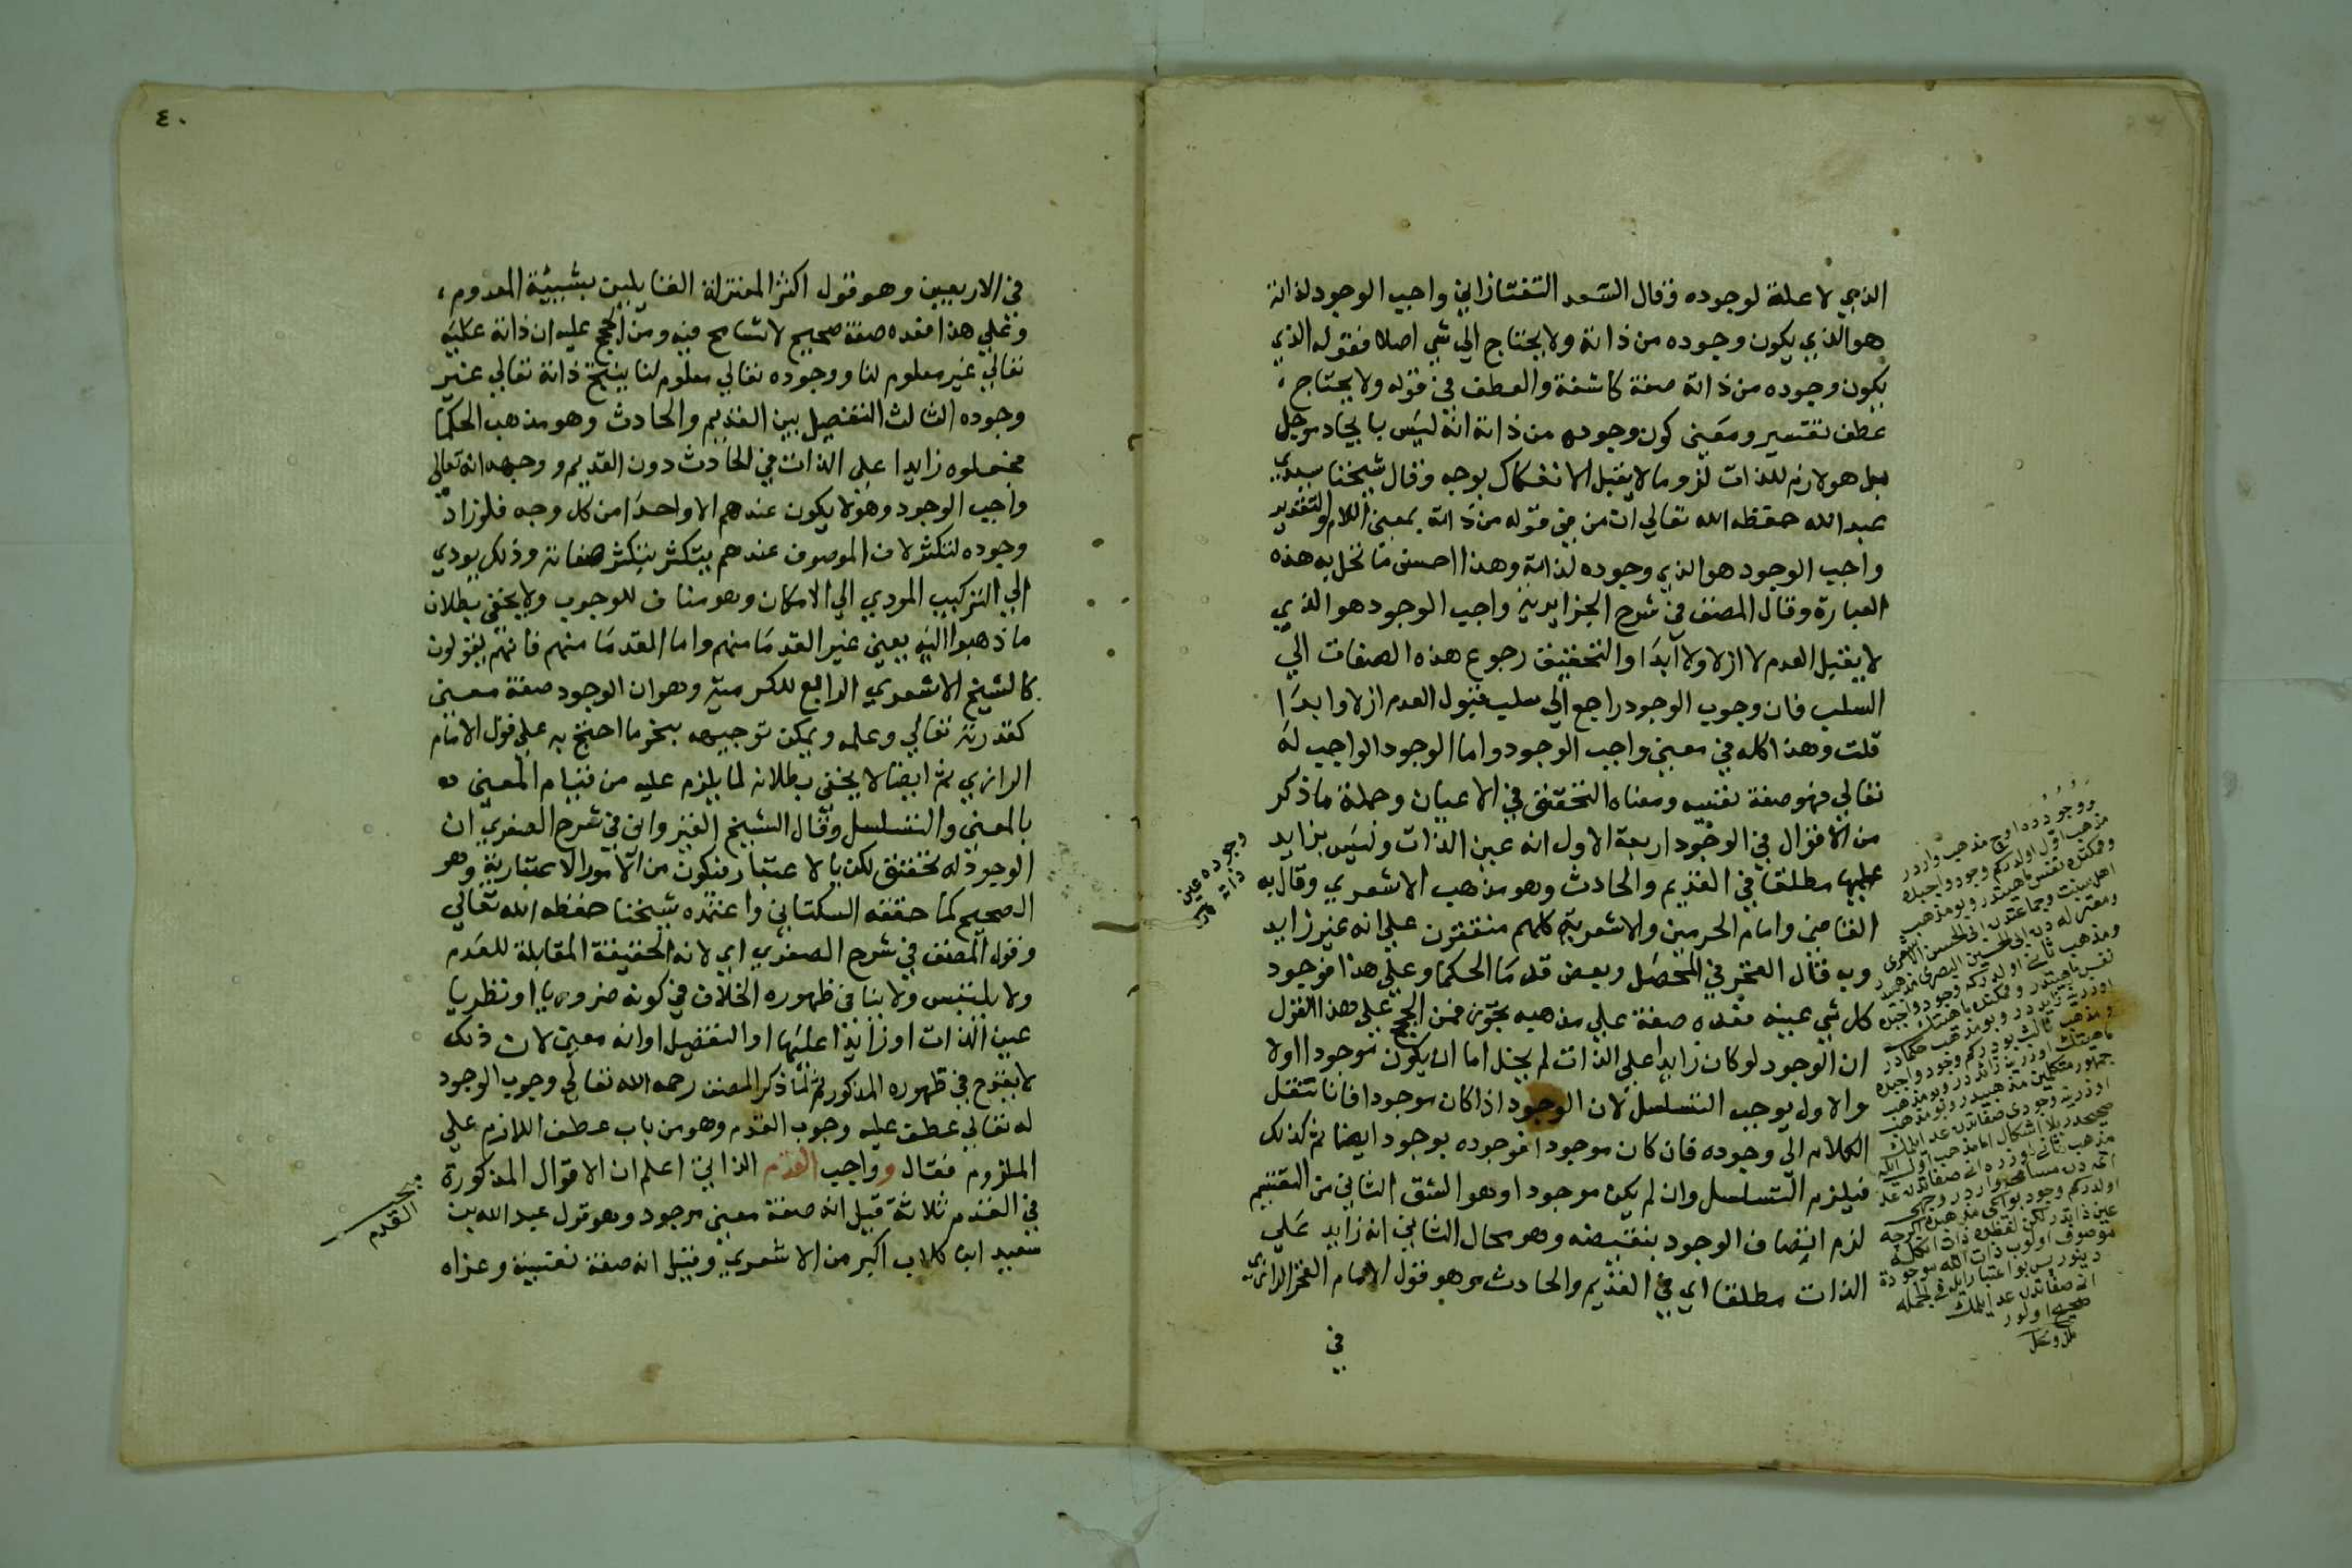 الذي لا علة لوجوده وقال السعد التفتازاني واجب الوجود لذاته
هو الذي يكون وجوده من ذاته ولا يحتاج الي شي اصلا فقوله الذي
يكون وجوده من ذاته صفة كاشفة والعطف في قوله ولا يحتاج
عطف تفسير ومعني كون وجوده من ذاته انه ليس بايجاد موجل
بل هو لازم للذات لزوما لا يقبل الانفكاك بوجه وقال شيخنا سيدي
عبد الله حفظه الله تعالي ان من في قوله من ذاته بمعني اللام والتقدير
واجب الوجود هو الذي وجوده لذاته وهذا احسن ما تحل به هذه
العبارة وقال المصنف في شرح الجزايرية واجب الوجود هو الذي
لا يقبل العدم لا ازلا ولا ابدا والتحقيق رجوع هذه الصفات الي
السلب فان وجوب الوجود راجع الي سلب قبول العدم ازلا وابدا
قلت وهذا كله في معني واجب الوجود واما الوجود الواجب له
تعالي فهو صفة نفسيه ومعناه التحقق في الاعيان وجملة ما ذكر
من الاقوال في الوجود اربعة الاول انه عين الذات وليس بزايد
عليها مطلقا في القديم والحادث وهو مذهب الاشعري وقال به
القاضي وامام الحرمين والاشعرية كلهم متفقون علي انه غير زايد
وبه قال الفخر في المحصل وبعض قدما الحكما وعلي هذا فوجود
كل شي عينه فعده صفة علي مذهبه تجوز فمن الحجج علي هذا القول
ان الوجود لو كان زايدا علي الذات لم يخل اما ان يكون موجودا اولا
والاول يوجب التسلسل لان الوجود اذا كان موجودا فانا ننقل
الكلام الي وجوده فان كان موجودا فوجوده بوجود ايضا ثم كذلك
فيلزم التسلسل وان لم يكن موجودا وهو الشق الثاني من التقسيم
لزم اتصاف الوجود بنقيضه وهو محال الثاني انه زايد علي
الذات مطلقا اي في القديم والحادث وهو قول الامام الفخر الرازي
في
وجوده عين
ذاته
ووجودده اوچ مذهب واردر
مذهب اول اولدركم وجود واجبده
وممكنده نفس ماهيتدر وبو مذهب
اهل سنت وجماعتدن ابي الحسن الاشعري
ومعتزله دن ابي الحسين البصري مذهبيدر
ومذهب ثاني اولدركه وجود واجبده
نفس ماهيتدر وممكنده ماهيتك
اوزرينه زايددر وبو مذهب حكمادر
ومذهب ثالث بودركم وجود واجبده
ماهيتك اوزرينه زائددر وبو مذهب
جمهور متكلمين مذهبيدر وبو مذهب
اوزرينه وجودي صفاتدن عد ايلمك
صحيحدر بلا اشكال اما مذهب اول ايله
مذهب ثاني اوزره اني صفاتدن عد
اتمه ده مسامحه واردر وجهي
اولدركم وجود بو ايكي مذهبده اكرچه
عين ذاتدر لكن لفظده ذات انكله
موصوف اولوب ذات الله موجودة
دينور پس بو اعتبار ايله في الجمله
اني صفاتدن عد ايلمك
صحيح اولور
٤٠
في الاربعين وهو قول اكثر المعتزلة القايلين بشيئية المعدوم
وعلي هذا فعده صفة صحيح لا تسامح فيه ومن الحجج عليه ان ذاته عليه
تعالي غير معلوم لنا ووجوده تعالي معلوم لنا ينتج ذاته تعالي غير
وجوده الثالث التفصيل بين القديم والحادث وهو مذهب الحكما
فجعلوه زايدا علي الذات في الحادث دون القديم ووجهه انه تعالي
واجب الوجود وهو لا يكون عندهم الا واحدا من كل وجه فلو زاد
وجوده لتكثر لان الموصوف عندهم يتكثر بتكثر صفاته وذلك يودي
الي التركيب المودي الي الامكان وهو مناف للوجوب ولا يخفي بطلان
ما ذهبوا اليه يعني غير القدما منهم واما القدما منهم فانهم يقولون
كالشيخ الاشعري الرابع للكرمية وهو ان الوجود صفة معني
كقدرته تعالي وعلمه ويمكن توجيهه بنحو ما احتج به علي قول الامام
الرازي ثم ايضا لا يخفي بطلانه لما يلزم عليه من قيام المعني
بالمعني والتسلسل وقال الشيخ القيرواني في شرح الصغري ان
الوجود له تحقق لكن بالاعتبار فيكون من الامور الاعتبارية وهو
الصحيح كما حققه السكتاني واعتمده شيخنا حفظه الله تعالي
وقول المصنف في شرح الصغري اي لانه الحقيقة المقابلة للعدم
ولا يلتبس ولا ينافي ظهوره الخلاف في كونه ضروريا او نظريا
عين الذات او زايدا عليها او التفصيل او انه معين لان ذلك
لا يقدح في ظهوره المذكور ثم لما ذكر المصنف رحمه الله تعالي وجوب الوجود
له تعالي عطف عليه وجوب القدم وهو من باب عطف اللازم علي
الملزوم فقال وواجب القدم الذاتي اعلم ان الاقوال المذكورة
في القدم ثلاثة قيل انه صفة معني موجود وهو قول عبد الله بن
سعيد ابن كلاب اكبر من الاشعري وقيل انه صفة نفسية وعزاه
مبحث
القدم